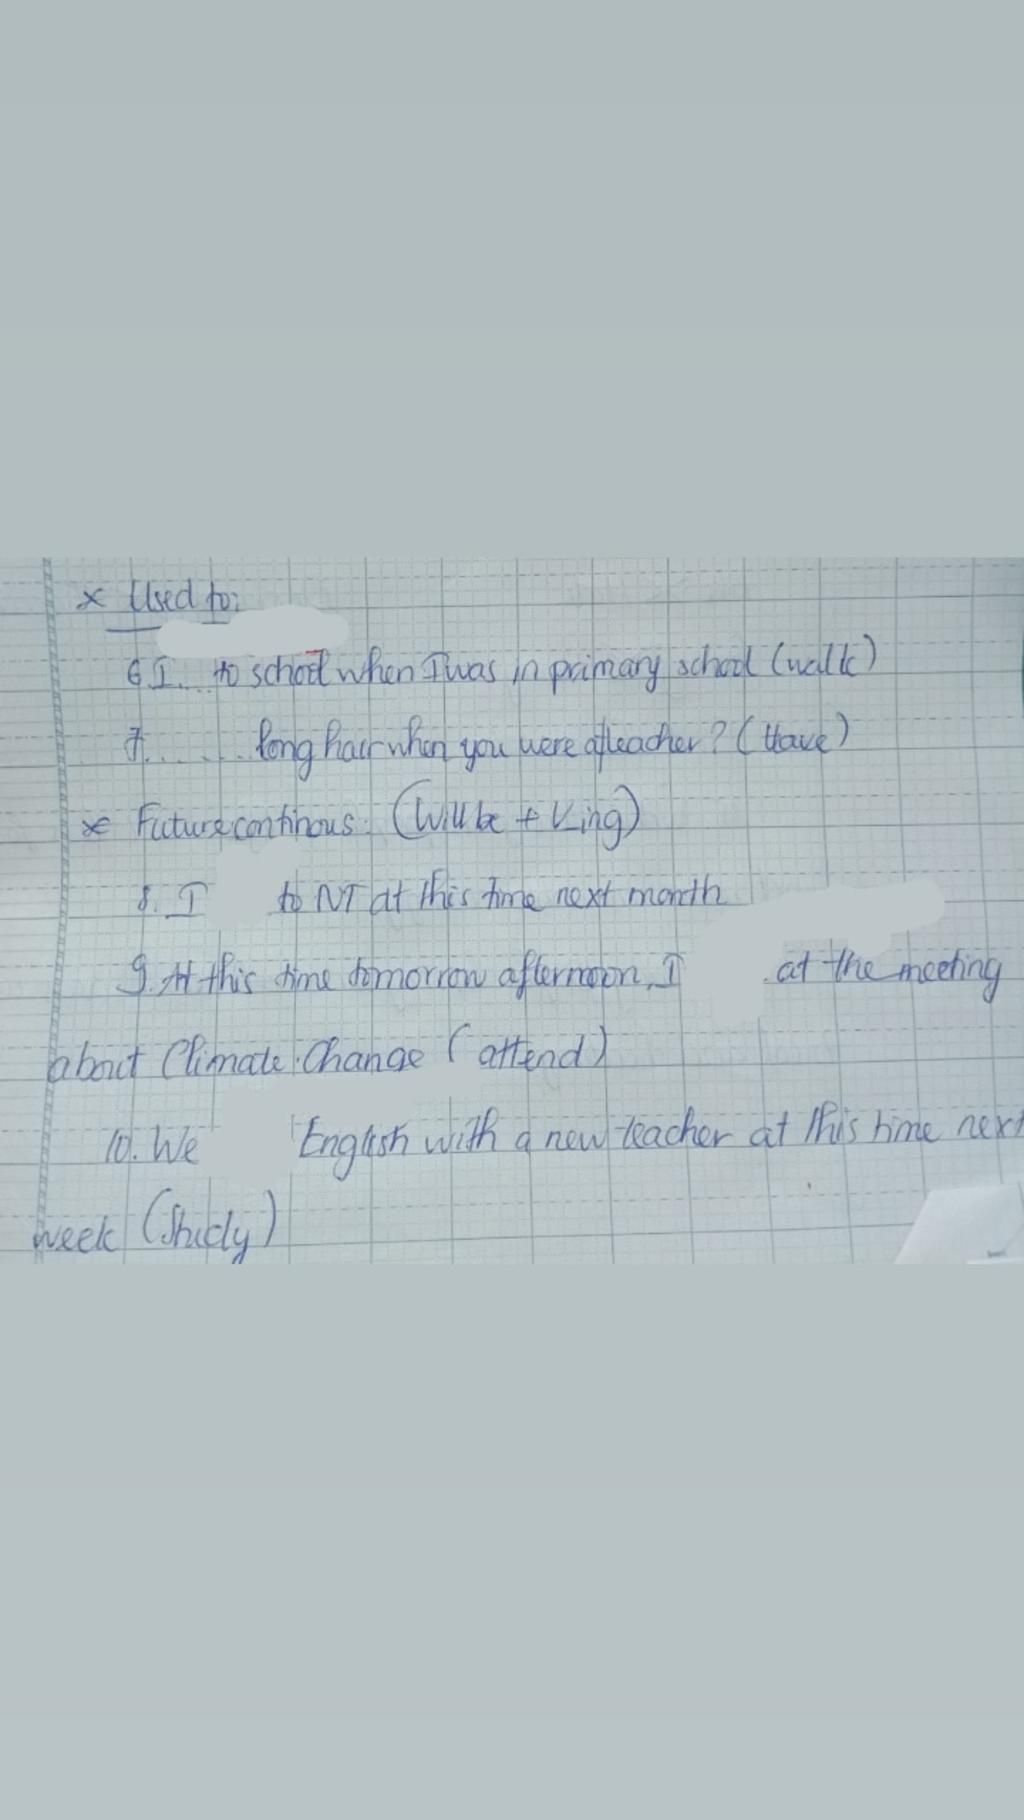 * Used to:
6 I... to school when I was in primary school (walk)
7........ long hair when you were a teacher? (Have)
* Future continous: (Will be + Ving)
8. I to NT at this time next month
9. At this time tomorrow afternoon, I . at the meeting
about Climate Change (attend)
10. We English with a new teacher at this time next
week (Study)